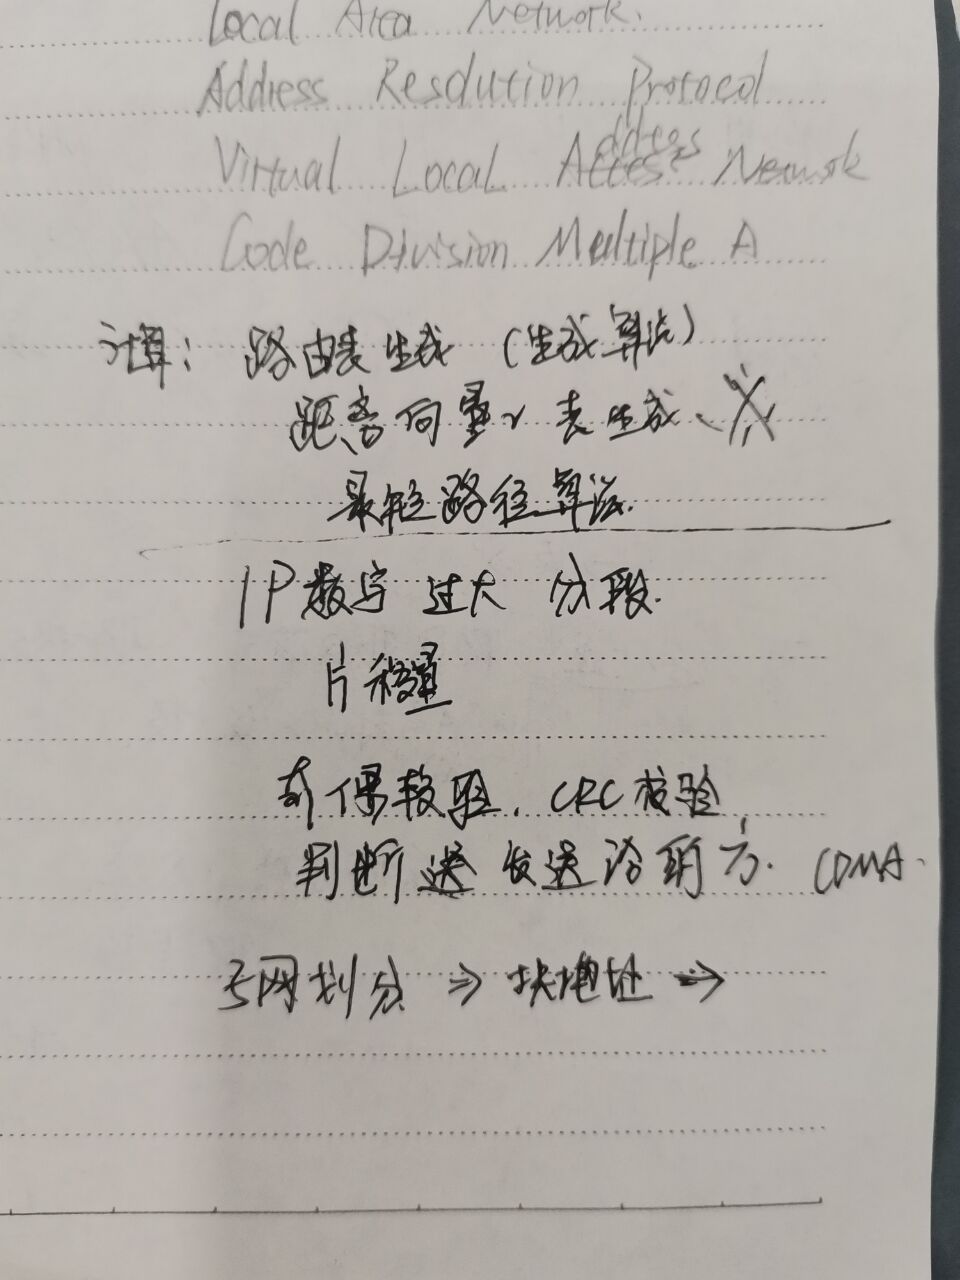 Local Area Network.
Address Resolution Protocol
Virtual Local Address Network
Code Division Multiple A
计算: 路由表生成 (生成算法)
距离向量、表生成、
最短路径算法.
IP数字 过大 分段.
片移量
奇偶校验. CRC校验
判断送 发送 方. CDMA.
子网划分 ⇒ 块地址 →